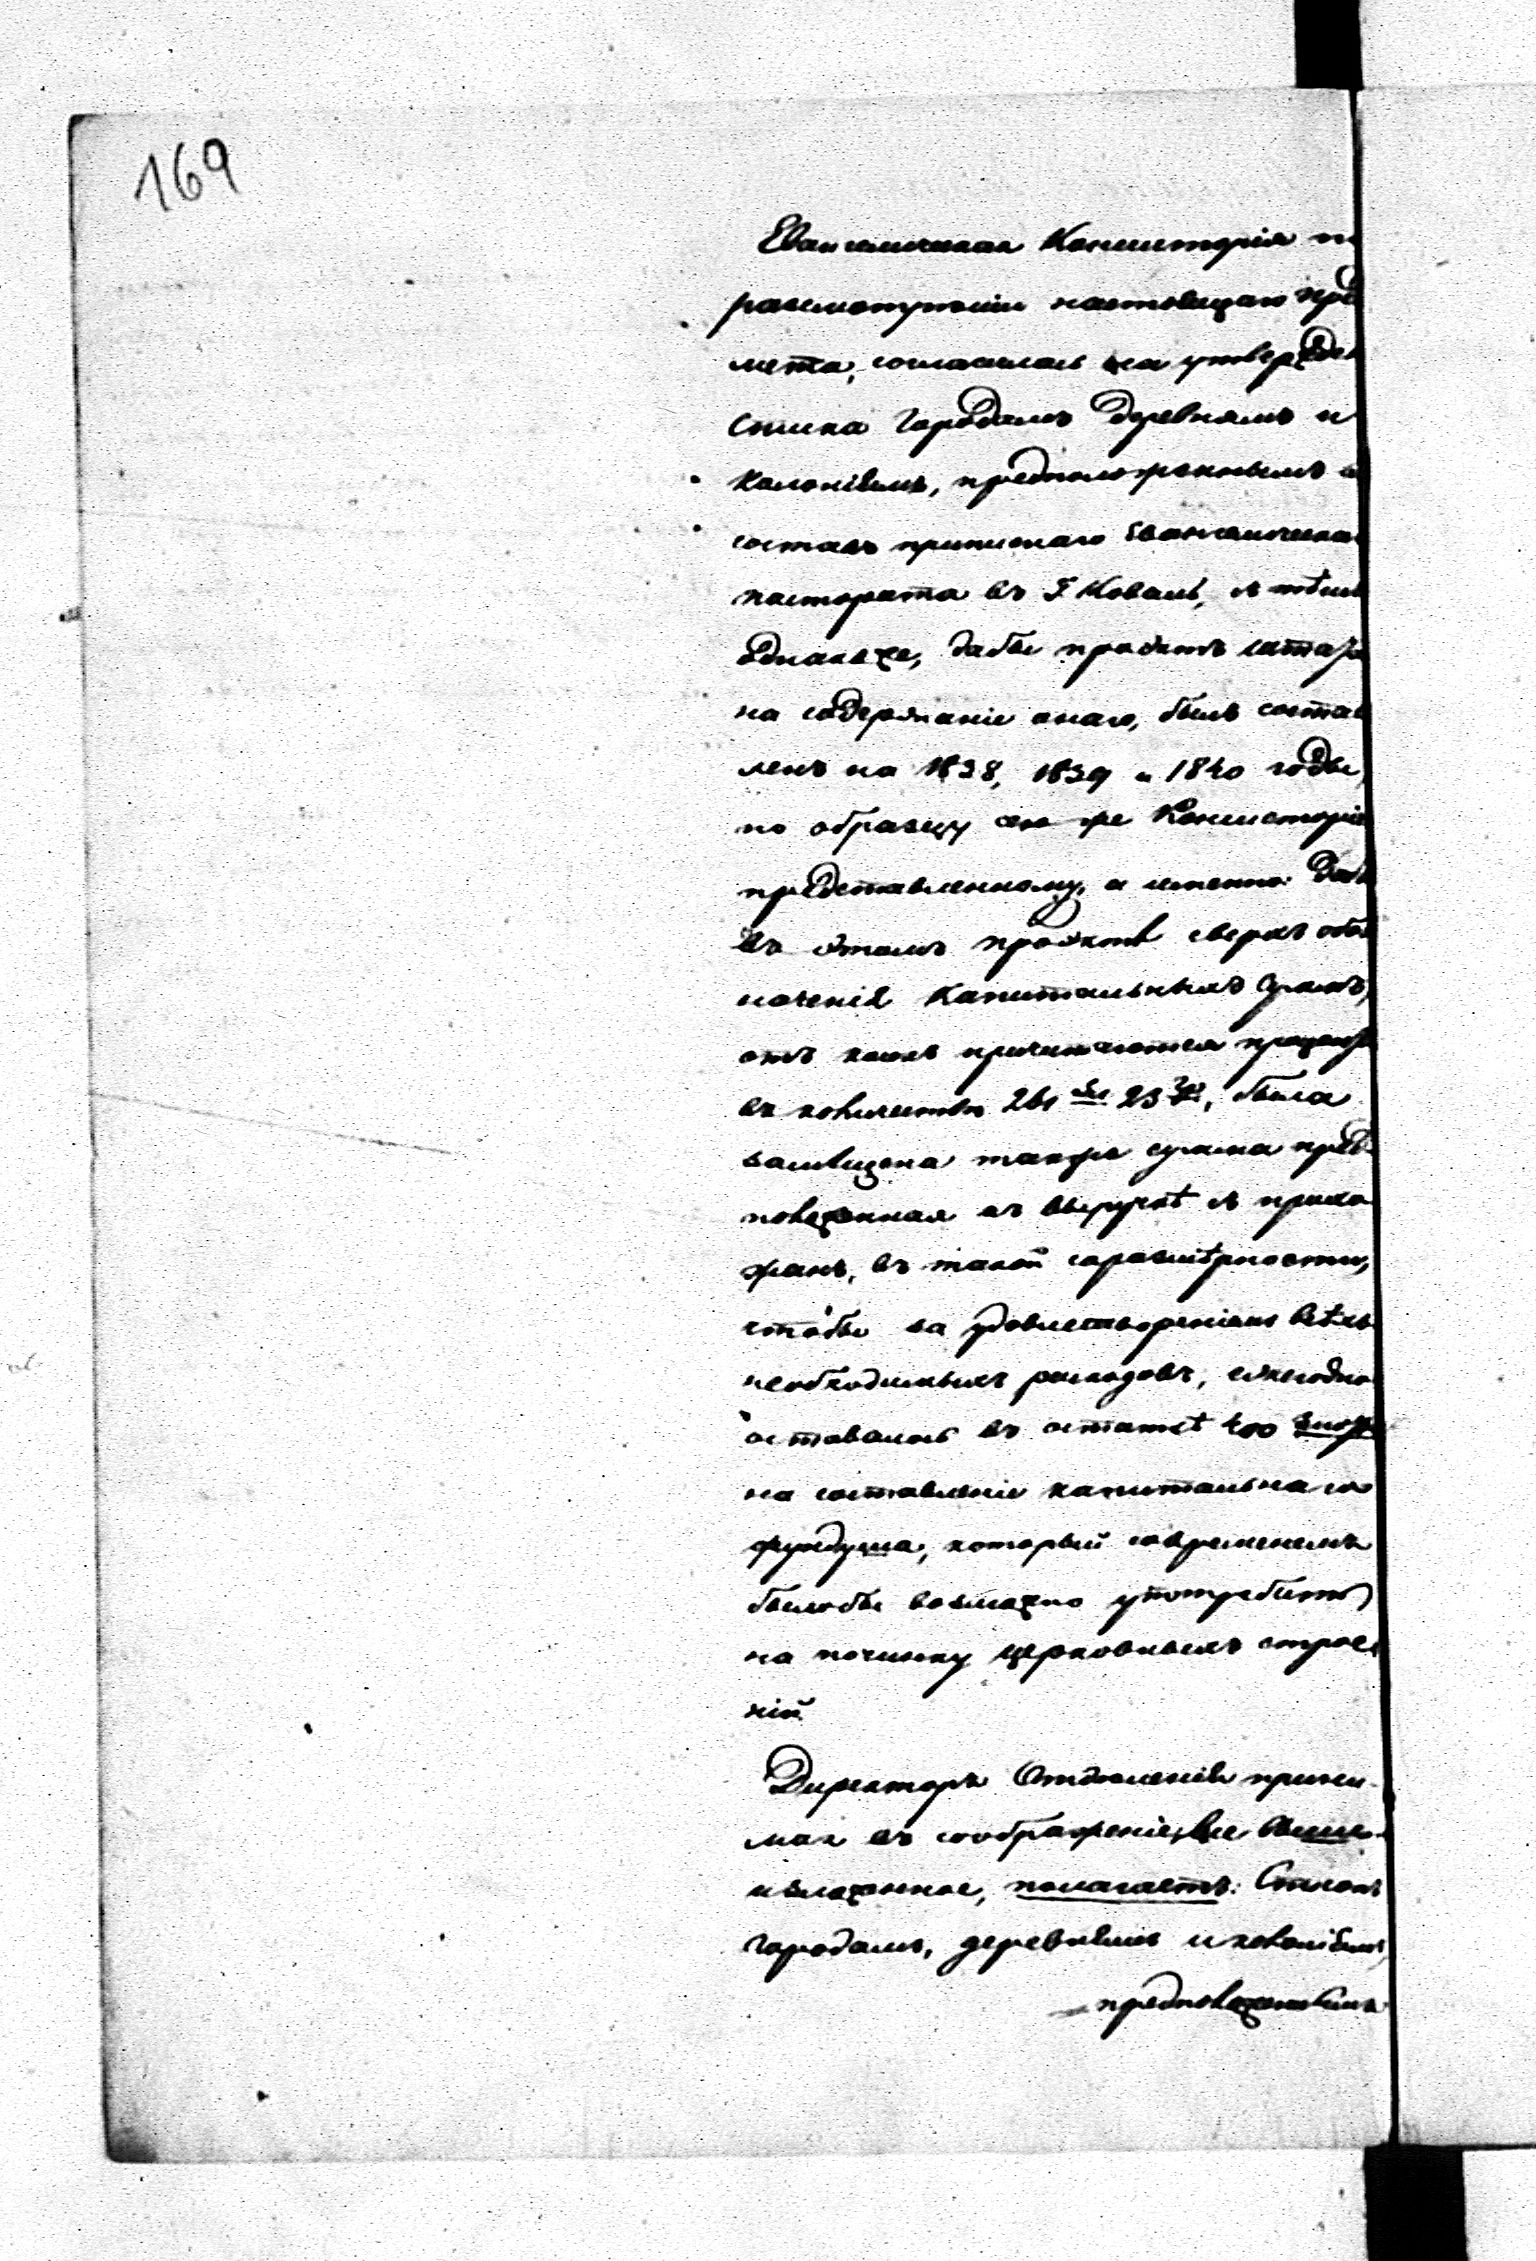 169
Евангелическая Консисторія по
разсмотрѣніи настоящаго пред
мета, согласилась на утвержден
списка городамъ деревнямъ и
колоніямъ, предположеннымъ въ
составъ приписнаго Евангелическа
пастората въ Г. Ковалѣ, съ тѣмъ
однакоже, дабы проэктъ штата
на содержаніе онаго, былъ состав
ленъ на 1838, 1839 и 1840 годы,
по образцу ею же Консисторіею
представленному, а именно: дабы
въ этомъ проэктѣ сверхъ обоз
наченія капитальныхъ суммъ,
отъ коихъ причитаются проценты
въ количествѣ 261 зл 23 гр, была
замѣщена также сумма пред
положенная къ выручкѣ съ прихо
жанъ, въ такой соразмѣрности,
чтобы за удовлетвореніемъ всѣхъ
необходимыхъ расходовъ, ежегодно
оставалось въ остаткѣ 400 злот
на составленіе капитальнаго
фундуша, который современемъ
былобы возможно употребить
на починку церковныхъ строе
ній.
Директоръ Отдѣленія прини-
мая въ соображеніе, все выше-
изложенное, полагаетъ: Списокъ
городамъ, деревнямъ и колоніямъ,
предположеннымъ